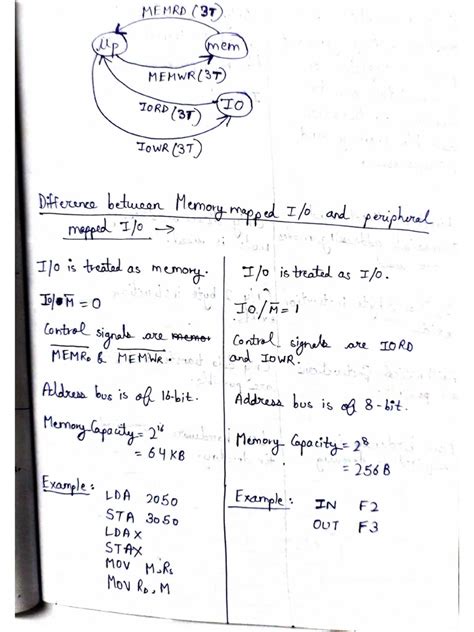 MEMRD (3T)
μp
mem
MEMWR(3T)
IORD(3T)
IO
IOWR(3T)
Difference between Memory mapped I/O and peripheral
mapped I/O →
I/O is treated as memory.
IO/M̅ = 0
Control signals are
MEMRD & MEMWR.
Address bus is of 16-bit.
Memory Capacity = 2¹⁶
= 64KB
Example:
LDA 2050
STA 3050
LDAX
STAX
MOV M,Rs
MOV RD, M
I/O is treated as I/O.
IO/M̅ = 1
Control signals are IORD
and IOWR.
Address bus is of 8-bit.
Memory Capacity = 2⁸
= 256B
Example:
IN F2
OUT F3